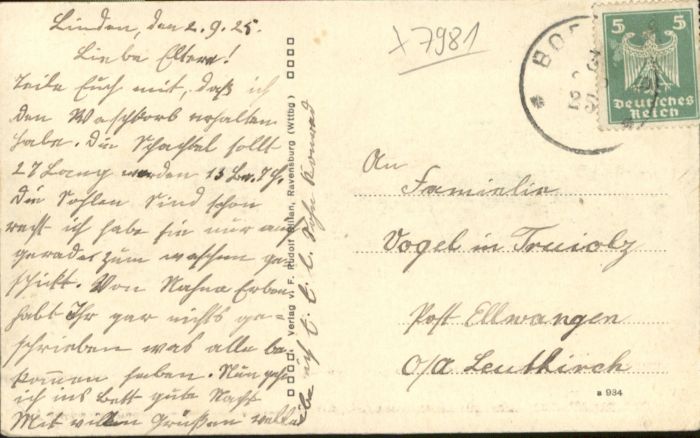 Linden, den 2.9.25.
Liebe Eltern!
Teile Euch mit, daß ich
den Waschkorb erhalten
habe. Die Schachtel sollt
27 Lang werden 15 Br. 7 H.
Die Sohlen sind schon
recht ich habe sie nur
gerade zum waschen ge-
schickt. Von
habt Ihr gar nichts ge-
schrieben was alle be-
kommen haben. Nun gehe
ich ins Bett gute Nacht
Mit vielen Grüßen
ich E. l. Sohn Konrad
Verlag v. F. Rudolf Ravensburg (Wttbg)
X7981
BO
5 5
Deutsches
Reich
An
Familie
Vogel in
Post Ellwangen
O/A Leutkirch
a 934